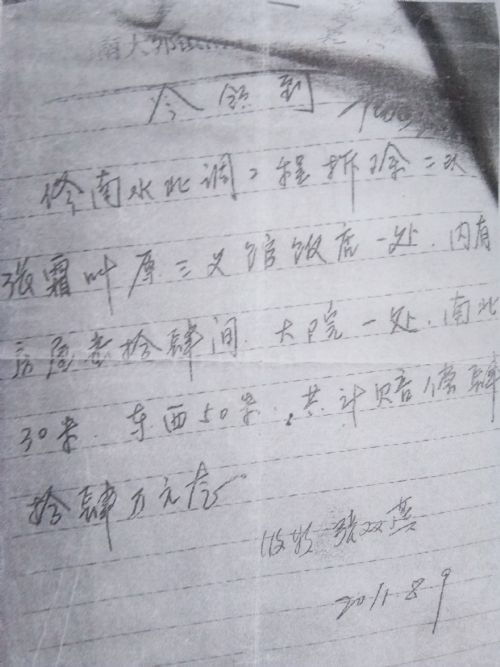 南大郭
今领到
修南水北调工程拆除二队
张霜叶原三义馆饭店一处.内有
房屋叁拾肆间 大院一处.南北
30米.东西50米.共计赔偿肆
拾肆万元表
收款 张双
2011.8 9